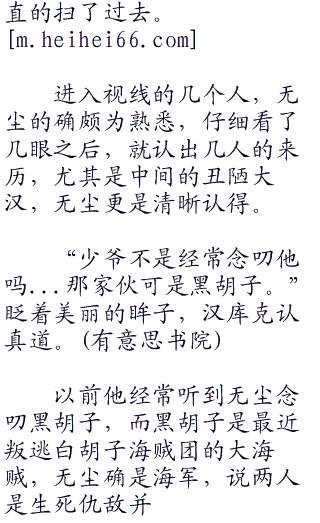 直的扫了过去。
[m.heihei66.com]
进入视线的几个人，无
尘的确颇为熟悉，仔细看了
几眼之后，就认出几人的来
历，尤其是中间的丑陋大
汉，无尘更是清晰认得。
“少爷不是经常念叨他
吗...那家伙可是黑胡子。”
眨着美丽的眸子，汉库克认
真道。(有意思书院)
以前他经常听到无尘念
叨黑胡子，而黑胡子是最近
叛逃白胡子海贼团的大海
贼，无尘确是海军，说两人
是生死仇敌并